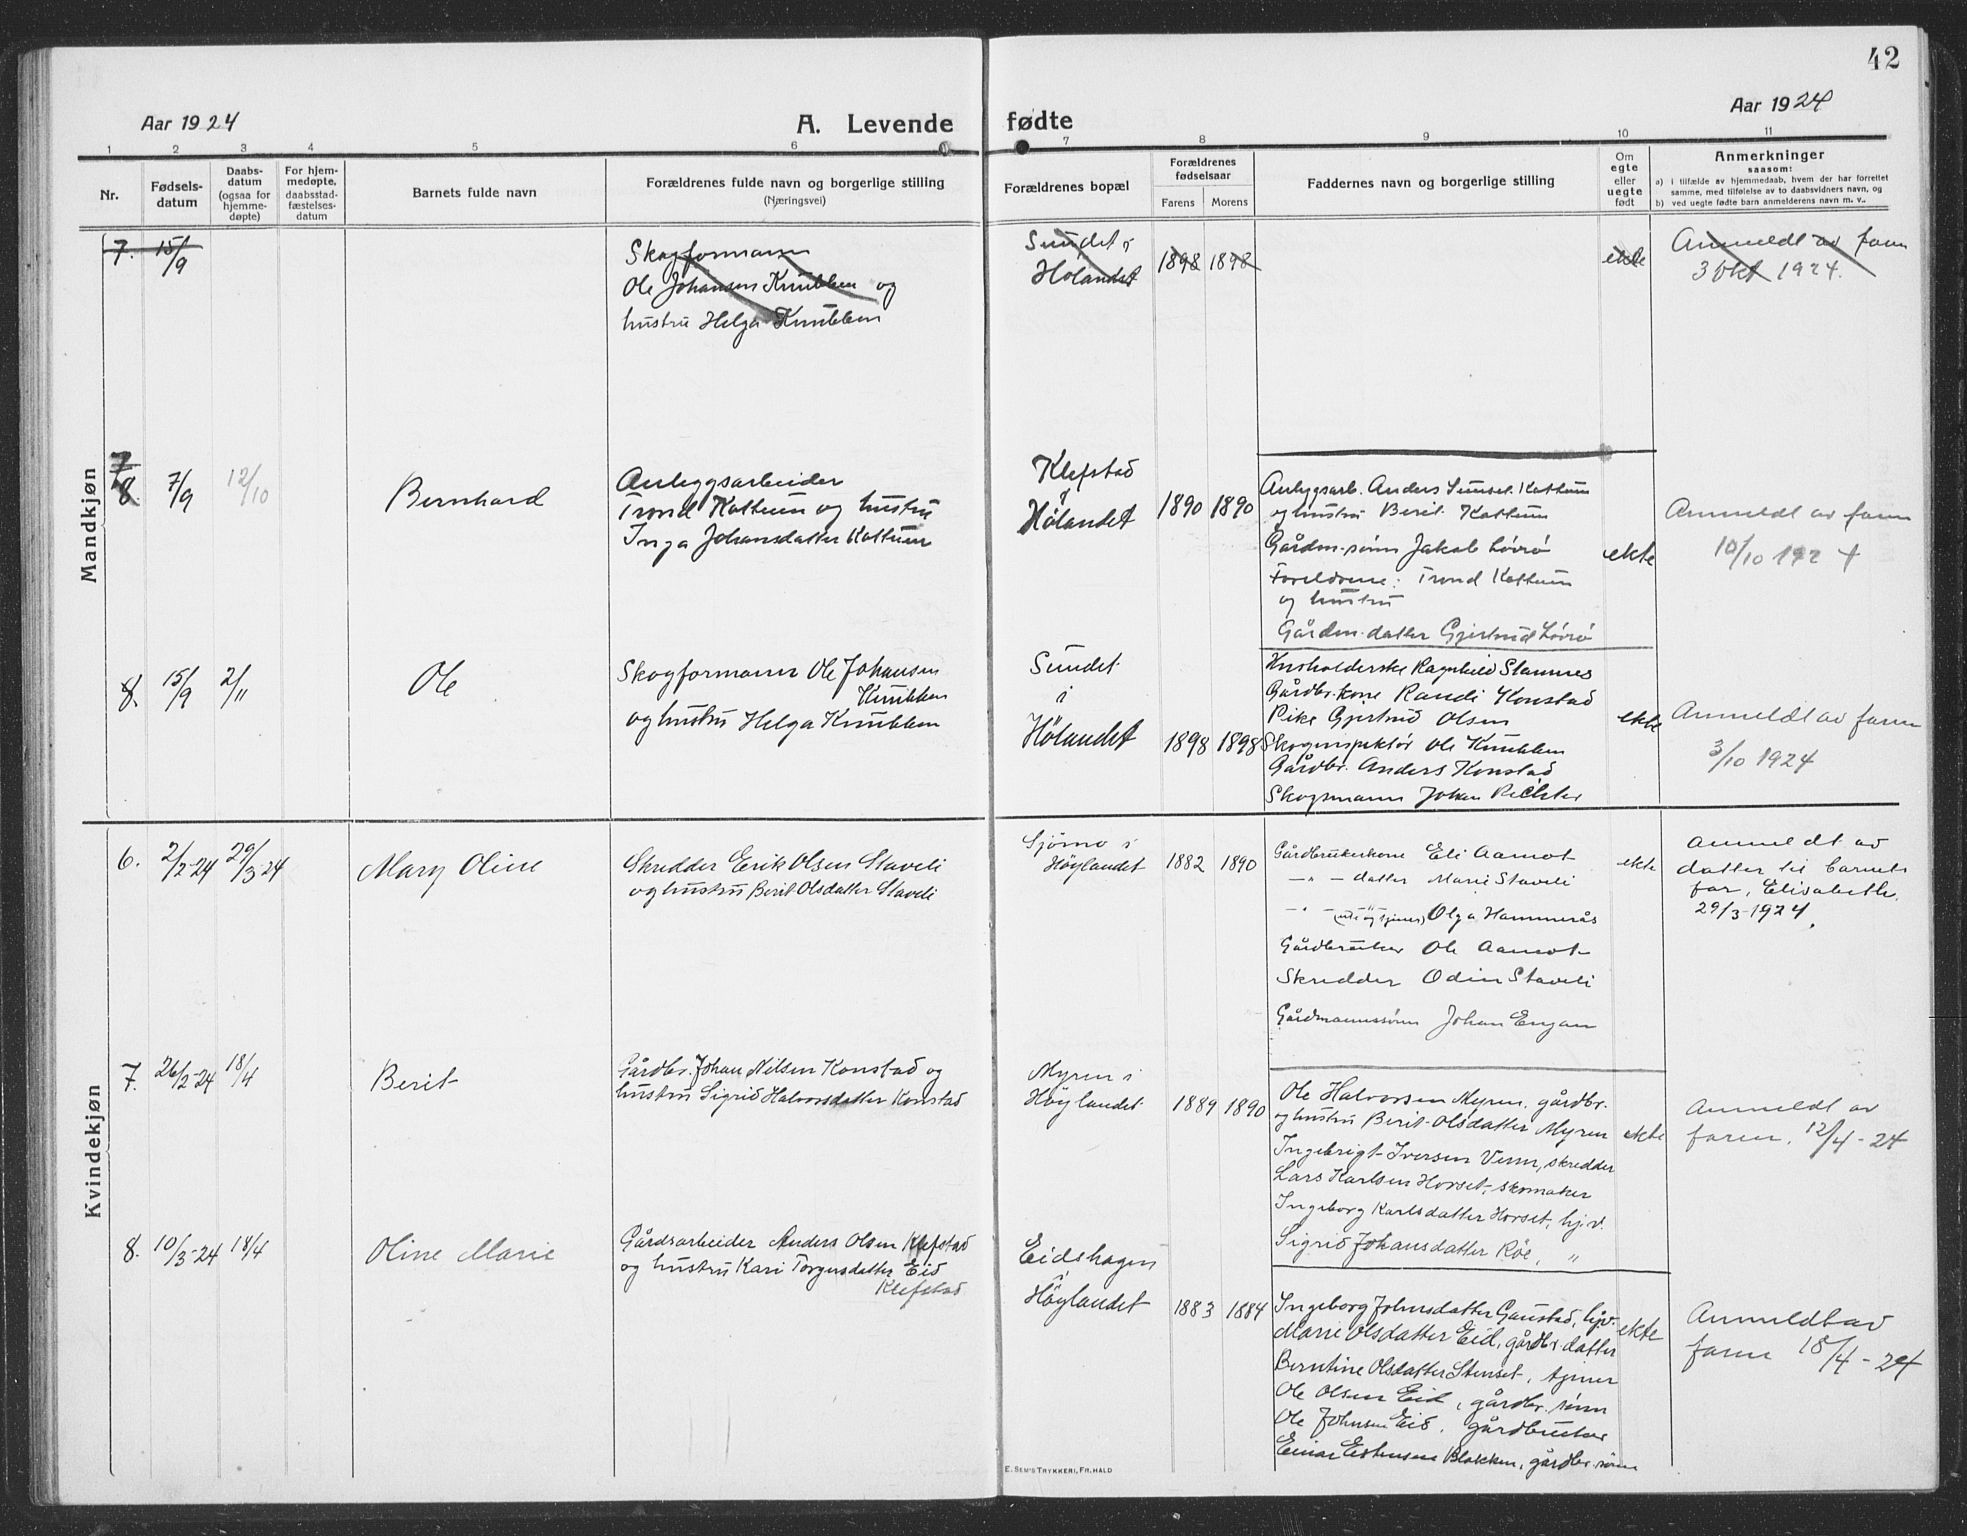 42
Aar 1924
A. Levende fødte
Aar 1924
1 2 3 4 5 6 7 8 9 10 11
Nr.
Fødsels-
datum
Daabs-
datum
(ogsaa for
hjemme-
døpte)
For hjem-
medøpte,
daabsstad-
fæstelses-
datum
Barnets fulde navn
Forældrenes fulde navn og borgerlige stilling
(Næringsvei)
Forældrenes bopæl
Forældrenes
fødselsaar
Farens Morens
Faddernes navn og borgerlige stilling
Om
egte
eller
uegte
født
Anmerkninger
saasom:
a) i tilfælde av hjemmedaab, hvem der har forrettet
samme, med tilføielse av to daabsvidners navn, og
b) ved uegte fødte barn anmelderens navn m. v..
Mandkjøn
7. 15/9
Skogformann
Ole Johansen Knubben og
hustru Helga Knubben
Sundet i
Hølandet
1898 1898
ekte
Anmeldt av faren
3 okt 1924.
7
8. 7/9 12/10
Bernhard
Anleggsarbeider
Trond Kottum og hustru
Inga Johansdatter Kottum
Klefstad
i
Hølandet
1890 1890
Anlegsarb. Anders Kottum
og hustru Berit Kottum
Gårdm.sønn Jakob Løvrø
Foreldrene: Trond Kottum
og hustru
Gårdm.datter Gjertrud Løvrø
ekte
Anmeldt av faren
10/10 1924
8. 15/9 2/11
Ole
Skogformann Ole Johansen
Knubben
og hustru Helga Knubben
Sundet
i
Hølandet
1898 1898
Husholderske Ragnhild Stamnes
Gårdbr.kone Randi Konstad
Pike Gjertrud Olsen
Skoginspektør Ole Knubben
Gårdbr. Anders Konstad
Skogsmann Johan Richter
ekte
Anmeldt av faren
3/10 1924
Kvindekjøn
6. 2/2-24 29/3-24
Mary Oline
Skredder Erik Olsen Staveli
og hustru Berit Olsdatter Staveli
Sjømo i
Höylandet
1882 1890
Gårdbrukerkone Eli Aamot
— " — datter Marie Staveli
— " — Olga Hammerås
Gårdbruker Ole Aamot
Skredder Odin Staveli
Gårdmannssønn Johan Engan
ekte
Anmeldt av
datter til barnets
far, Elisabeth.
29/3-1924.
7. 26/2-24 18/4
Berit
Gårdbr. Johan Nilsen Konstad og
hustru Sigrid Halvorsdatter Konstad
Myren i
Höylandet
1889 1890
Ole Halvorsen Myren, gårdbr.
og hustru Berit Olsdatter Myren
Ingebrigt Iversen Venn, skredder
Lars Karlsen Horset, skomaker
Ingeborg Karlsdatter Horset, hj.v.
Sigrid Johansdatter Røe, "
ekte
Anmeldt av
faren. 12/4-24
8. 10/3-24 18/4
Oline Marie
Gårdsarbeider Anders Olsen Klefstad
og hustru Kari Torgersdatter Eid
Klefstad
Eidshagen
i
Höylandet
1883 1884
Ingeborg Johnsdatter Gaustad, hjv.
Marie Olsdatter Eid, gårdbr.datter
Berntine Olsdatter Stenset, tjener
Ole Olsen Eid, gårdbr. sønn
Ole Johnsen Eid, gårdbruker
Einar Estensen Blokken, gårdbr. sønn
ekte
Anmeldt av
faren 18/4-24
E. Sem's Trykkeri, Fr.hald